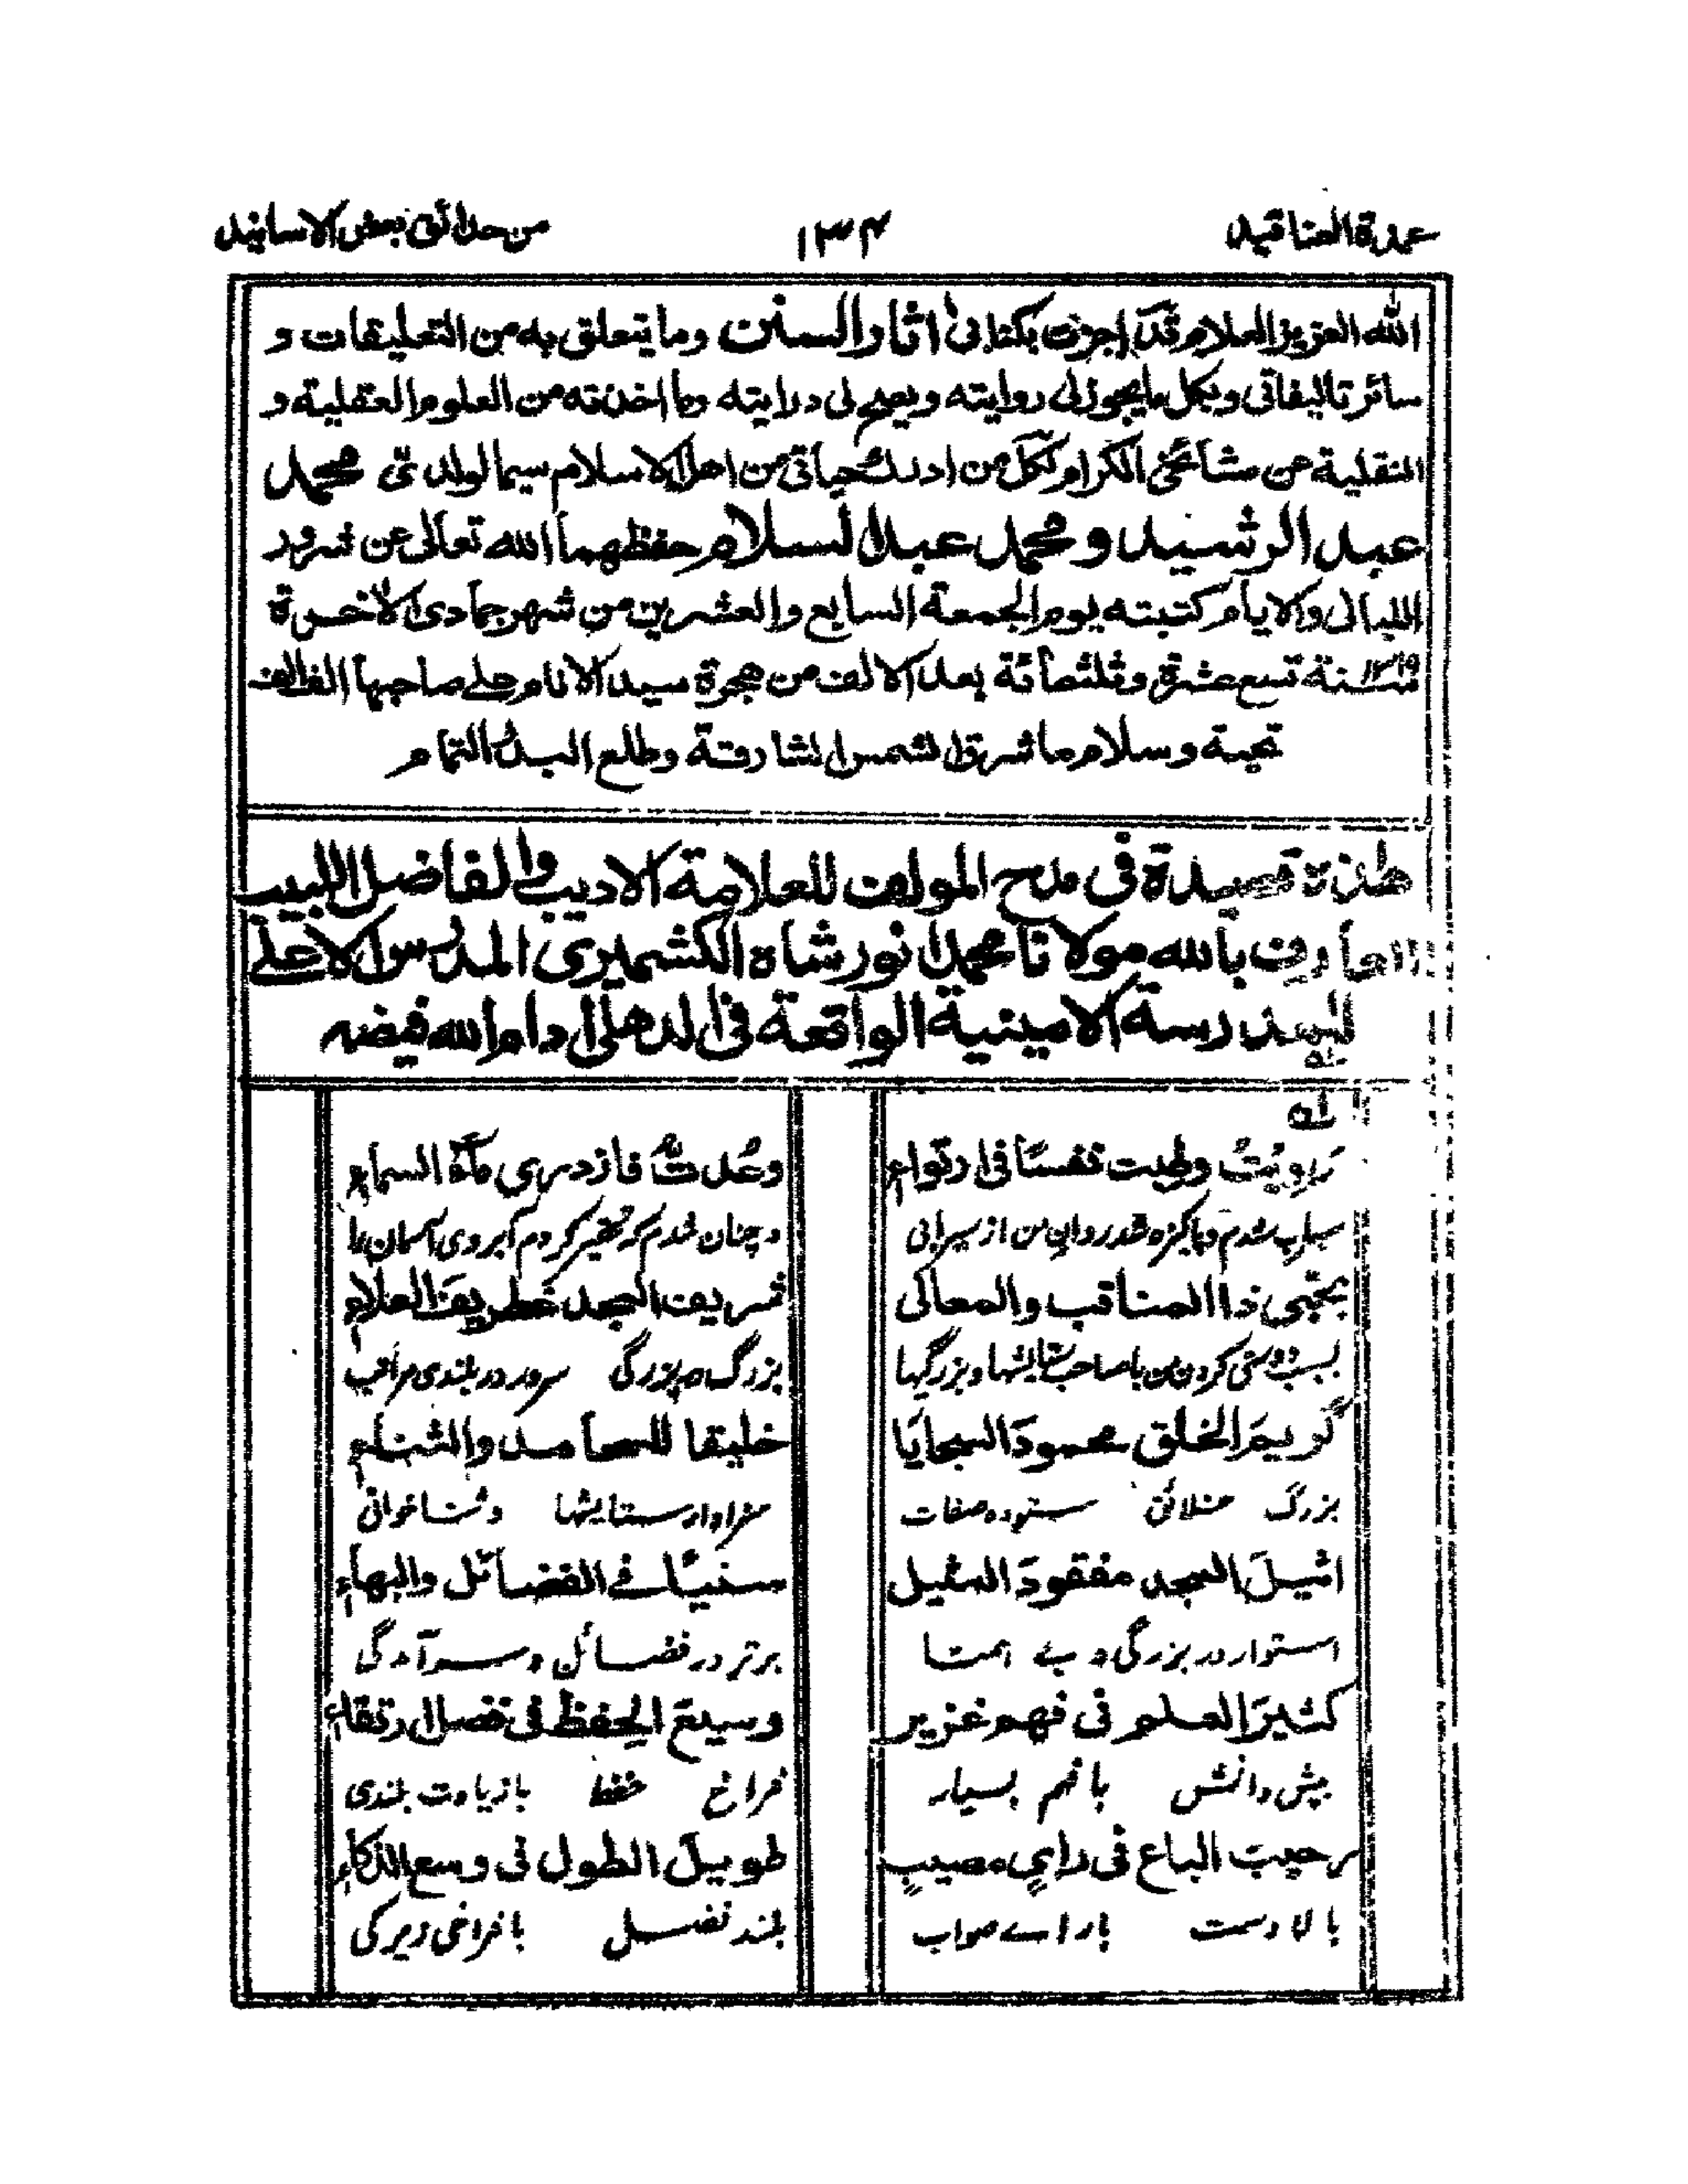 عمدة العناقيد ١٣٤ من حدائق بعض الاسانيد
الله العزيز العلام قد اجزت بكتابى اثار السنن وما يتعلق به من التعليقات و
سائر تاليفاتى وبكل ما يجوز لى روايته ويصح لى درايته وما اخذته من العلوم العقلية و
النقلية عن مشائخى الكرام لكل من ادرك حياتى من اهل الاسلام سيما لولدىّ محمد
عبد الرشيد ومحمد عبد السلام حفظهما الله تعالى عن شرور
الليالى والايام كتبته يوم الجمعة السابع والعشرين من شهر جمادى الاخرة
١٣١٩ سنة تسع عشرة وثلثمائة بعد الالف من هجرة سيد الانام على صاحبها الف الف
تحية وسلام ما شرق الشمس الشارقة وطلع البدر التمام
هذه قصيدة فى مدح المولف للعلامة الاديب والفاضل اللبيب
العارف بالله مولانا محمد انور شاه الكشميرى المدرس الاعلى
للمدرسة الامينية الواقعة فى الدهلى ادام الله فيضه
رويت وطبت نفسًا فى ارتواء وعدت فازدرى ماء السماء
سيراب شدم وپاكيزه شد روان من از سيرابى وچنان شدم كه تحقير كردم آبروى آسمان را
بحبّى ذا المناقب والمعالى شريف المجد غطريف العلاء
بسبب دوستى كردن من با صاحب ستايشها وبزرگيها بزرگ در بزرگى سرور در بلندى مراتب
كريم الخلق محمود السجايا خليقا للمحامد والثناء
بزرگ خلائق ستوده صفات سزاوار ستايشها وثناخوانى
اثيل المجد مفقود المثيل سنيًا فے الفضائل والبهاء
استوار در بزرگى و بے همتا برتر در فضائل و سرآمدگى
كثير العلم فى فهم غزير وسيع الحفظ فى فضل ارتقاء
بيش دانش با فهم بسيار فراخ حفظ با زيادت بلندى
رحيب الباع فى راي مصيب طويل الطول فى وسع الذكاء
بالا دست با راے صواب بلند تفضل با فراخى زيركى